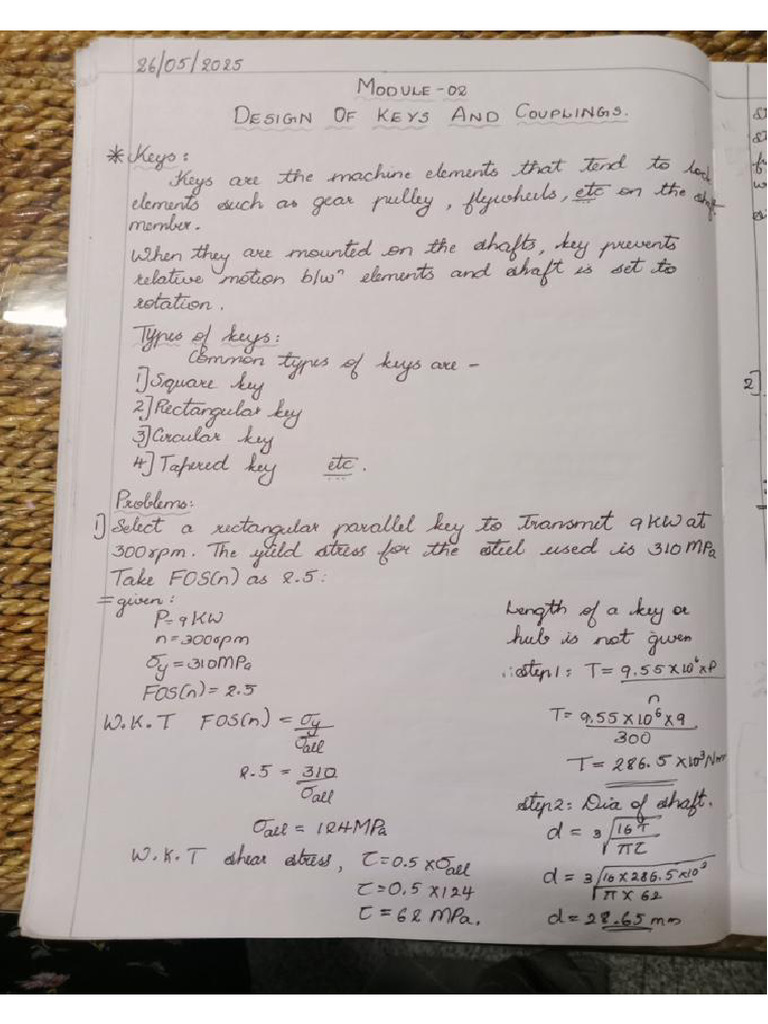 26/05/2025
MODULE-02
DESIGN OF KEYS AND COUPLINGS.
* Keys:
Keys are the machine elements that tend to lock
elements such as gear pulley, flywheels, etc on the shaft
member.
When they are mounted on the shafts, key prevents
relative motion b/wⁿ elements and shaft is set to
rotation.
Types of keys:
Common types of keys are -
1] Square key
2] Rectangular key
3] Circular key
4] Tapered key etc.
Problems:
1] Select a rectangular parallel key to transmit 9KW at
300rpm. The yield stress for the steel used is 310MPa
Take FOS(n) as 2.5:
= given:
P=9KW
n=300rpm
σy=310MPa
FOS(n)=2.5
W.K.T FOS(n) = σy/σall
2.5 = 310/σall
σall = 124MPa
W.K.T shear stress, τ=0.5×σall
τ=0.5×124
τ=62 MPa.
Length of a key or
hub is not given
∴ step1: T= 9.55×10⁶×P/n
T= 9.55×10⁶×9/300
T= 286.5×10³Nmm
step2: Dia of shaft.
d = 3√16T/πτ
d = 3√16×286.5×10³/π×62
d=28.65mm
2]